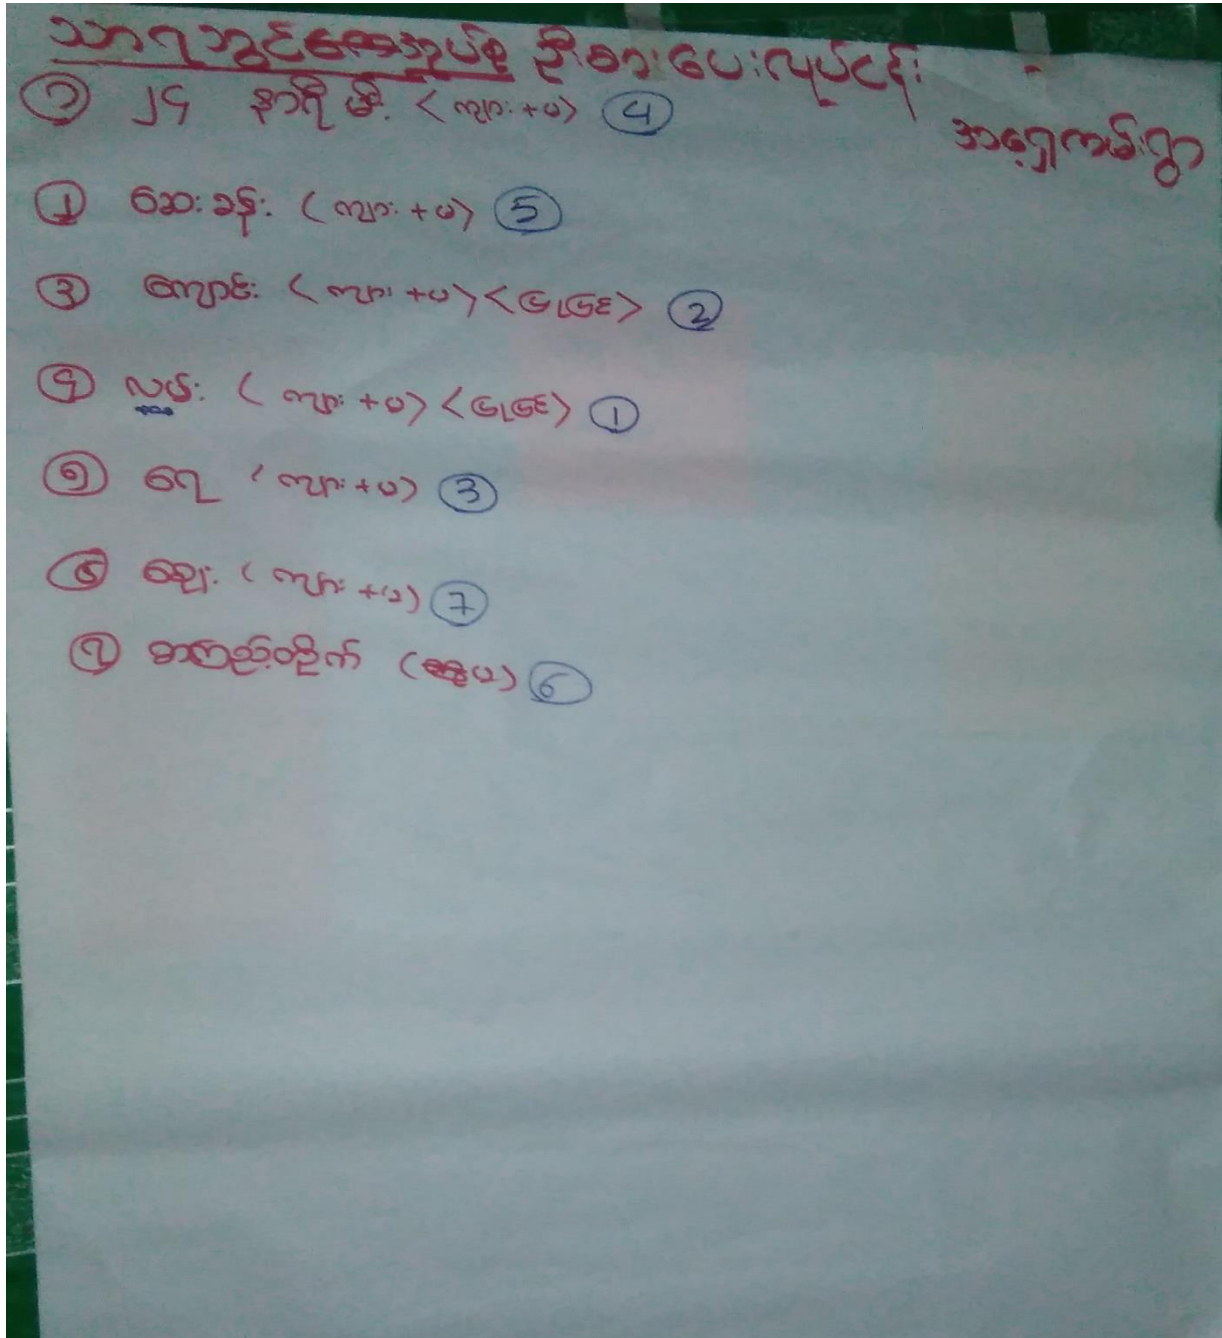 သာရဘွင်ကျေးအုပ်စု ဦးစားပေးလုပ်ငန်း -
အရှေ့ကမ်းရွာ
၁ ၂၄ နာရီ မီး <ကျား+မ> 4
၂ ဆေးခန်း (ကျား+မ) 5
၃ ကျောင်း <ကျား+မ> 2
၄ လမ်း (ကျား+မ) 1
၅ ရေ (ကျား+မ) 3
၆ ဈေး (ကျား+မ) 7
၇ စာကြည့်တိုက် 6